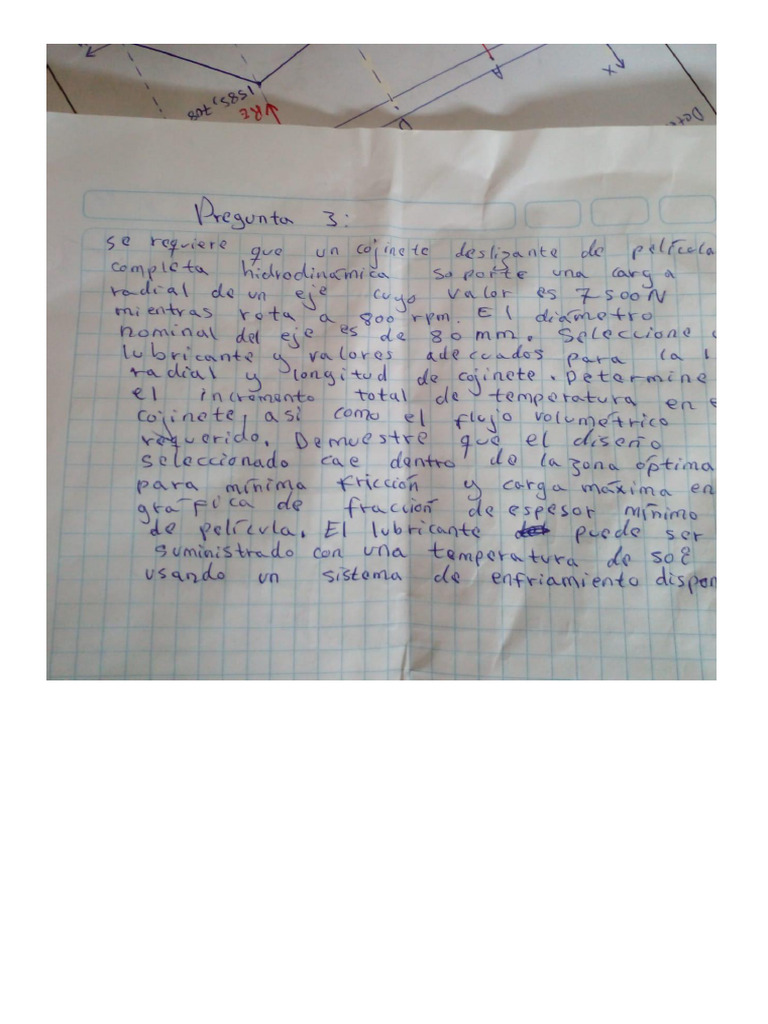 1585,708
RE
A
X
D
Pregunta 3:
se requiere que un cojinete deslizante de película
completa hidrodinámica soporte una carga
radial de un eje cuyo valor es 7500N
mientras rota a 800 rpm. El diámetro
nominal del eje es de 80 mm. Seleccione
lubricante y valores adecuados para la
radial y longitud de cojinete. Determine
el incremento total de temperatura en
cojinete, asi como el flujo volumétrico
requerido. Demuestre que el diseño
seleccionado cae dentro de la zona óptima
para mínima fricción y carga máxima en
gráfica de fracción de espesor mínimo
de película. El lubricante puede ser
suministrado con una temperatura de
usando un sistema de enfriamiento